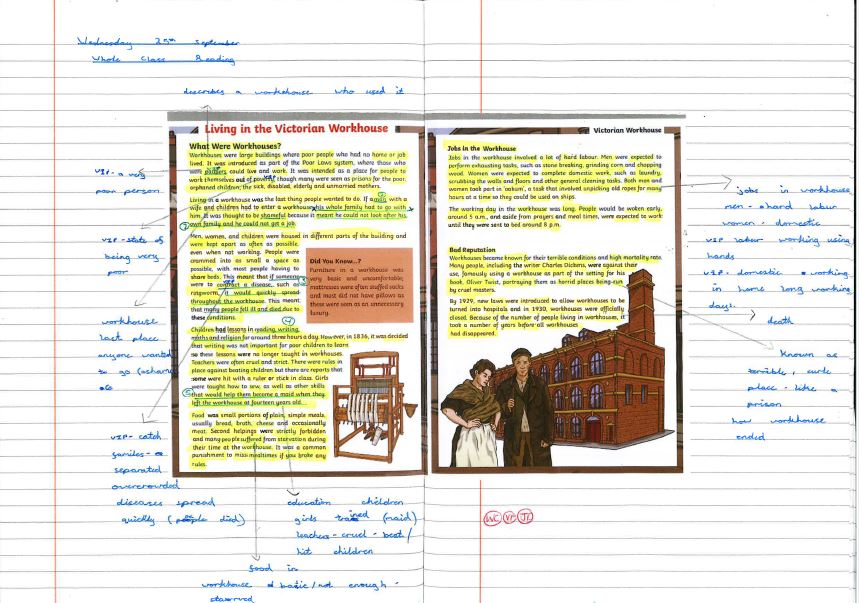 Wednesday 25th September
Whole Class Reading
describes a workhouse who used it
Living in the Victorian Workhouse
What Were Workhouses?
Workhouses were large buildings where poor people who had no home or job
lived. It was introduced as part of the Poor Laws system, where those who
were paupers could live and work. It was intended as a place for people to
work themselves out of poverty though many were seen as prisons for the poor,
orphaned children, the sick, disabled, elderly and unmarried mothers.
Living in a workhouse was the last thing people wanted to do. If a man with a
wife and children had to enter a workhouse, his whole family had to go with
him. It was thought to be shameful because it meant he could not look after his
own family and he could not get a job.
Men, women, and children were housed in different parts of the building and
were kept apart as often as possible,
even when not working. People were
crammed into as small a space as
possible, with most people having to
share beds. This meant that if someone
were to contract a disease, such as
ringworm, it would quickly spread
throughout the workhouse. This meant
that many people fell ill and died due to
these conditions.
Did You Know...?
Furniture in a workhouse was
very basic and uncomfortable;
mattresses were often stuffed sacks
and most did not have pillows as
these were seen as an unnecessary
luxury.
Children had lessons in reading, writing,
maths and religion for around three hours a day. However, in 1836, it was decided
that writing was not important for poor children to learn
so these lessons were no longer taught in workhouses.
Teachers were often cruel and strict. There were rules in
place against beating children but there are reports that
some were hit with a ruler or stick in class. Girls
were taught how to sew, as well as other skills
that would help them become a maid when they
left the workhouse at fourteen years old.
Food was small portions of plain, simple meals,
usually bread, broth, cheese and occasionally
meat. Second helpings were strictly forbidden
and many people suffered from starvation during
their time at the workhouse. It was a common
punishment to miss mealtimes if you broke any
rules.
VIP - a very
poor person.
VIP - state of
being very
poor
workhouse
last place
anyone wanted
to go
VIP - catch
separated
overcrowded
diseases spread
quickly (people died)
education children
girls trained (maid)
teachers - cruel - beat /
hit children
food in
workhouse basic / not enough -
starved
Victorian Workhouse
Jobs in the Workhouse
Jobs in the workhouse involved a lot of hard labour. Men were expected to
perform exhausting tasks, such as stone breaking, grinding corn and chopping
wood. Women were expected to complete domestic work, such as laundry,
scrubbing the walls and floors and other general cleaning tasks. Both men and
women took part in 'oakum', a task that involved unpicking old ropes for many
hours at a time so they could be used on ships.
The working day in the workhouse was long. People would be woken early,
around 5 a.m., and aside from prayers and meal times, were expected to work
until they were sent to bed around 8 p.m.
Bad Reputation
Workhouses became known for their terrible conditions and high mortality rate.
Many people, including the writer Charles Dickens, were against their
use, famously using a workhouse as part of the setting for his
book, Oliver Twist, portraying them as horrid places being run
by cruel masters.
By 1929, new laws were introduced to allow workhouses to be
turned into hospitals and in 1930, workhouses were officially
closed. Because of the number of people living in workhouses, it
took a number of years before all workhouses
had disappeared.
jobs in workhouse
men - hard labour
women - domestic
VIP labour working using
hands
VIP - domestic working
in home long working
days
death
known as
terrible,
place - like a
prison
how workhouse
ended
WC VF JT